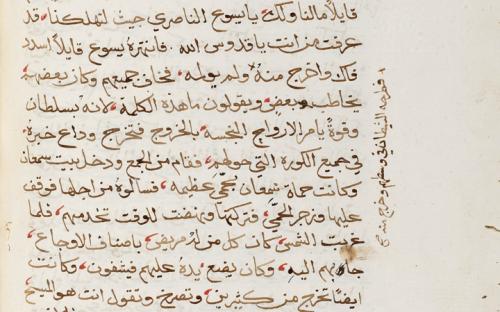 قايلاً مالنا ولك يا يسوع الناصري جيت لتهلكنا قد
عرفت من انت يا قدوس الله فانتهره يسوع قايلاً اسدد
فاك واخرج منه ولم يولمه فخاف جميعهم وكان بعضهم
يخاطب بعض ويقولون ما هذه الكلمه لانه بسلطان
وقوة يامر الارواح النجسه بالخروج فتخرج وذاع خبره
في جميع الكورة التي حولهم فقام من الجمع ودخل بيت سمعان
وكانت حماة سمعان بحمي عظيمه فسالوه من اجلها فوقف
عليها وزجر الحمي فتركتها ونهضت للوقت تخدمهم فلما
غربت الشمس كان كل من له مريض باصناف الاوجاع
جاوهم اليه وكان يضع يده عليهم فيشفون وكانت
ايضاً تخرج من كثيرين وتصرخ وتقول انت هو المسيح
فطرحه الشيطان في وسطهم وخرج منه